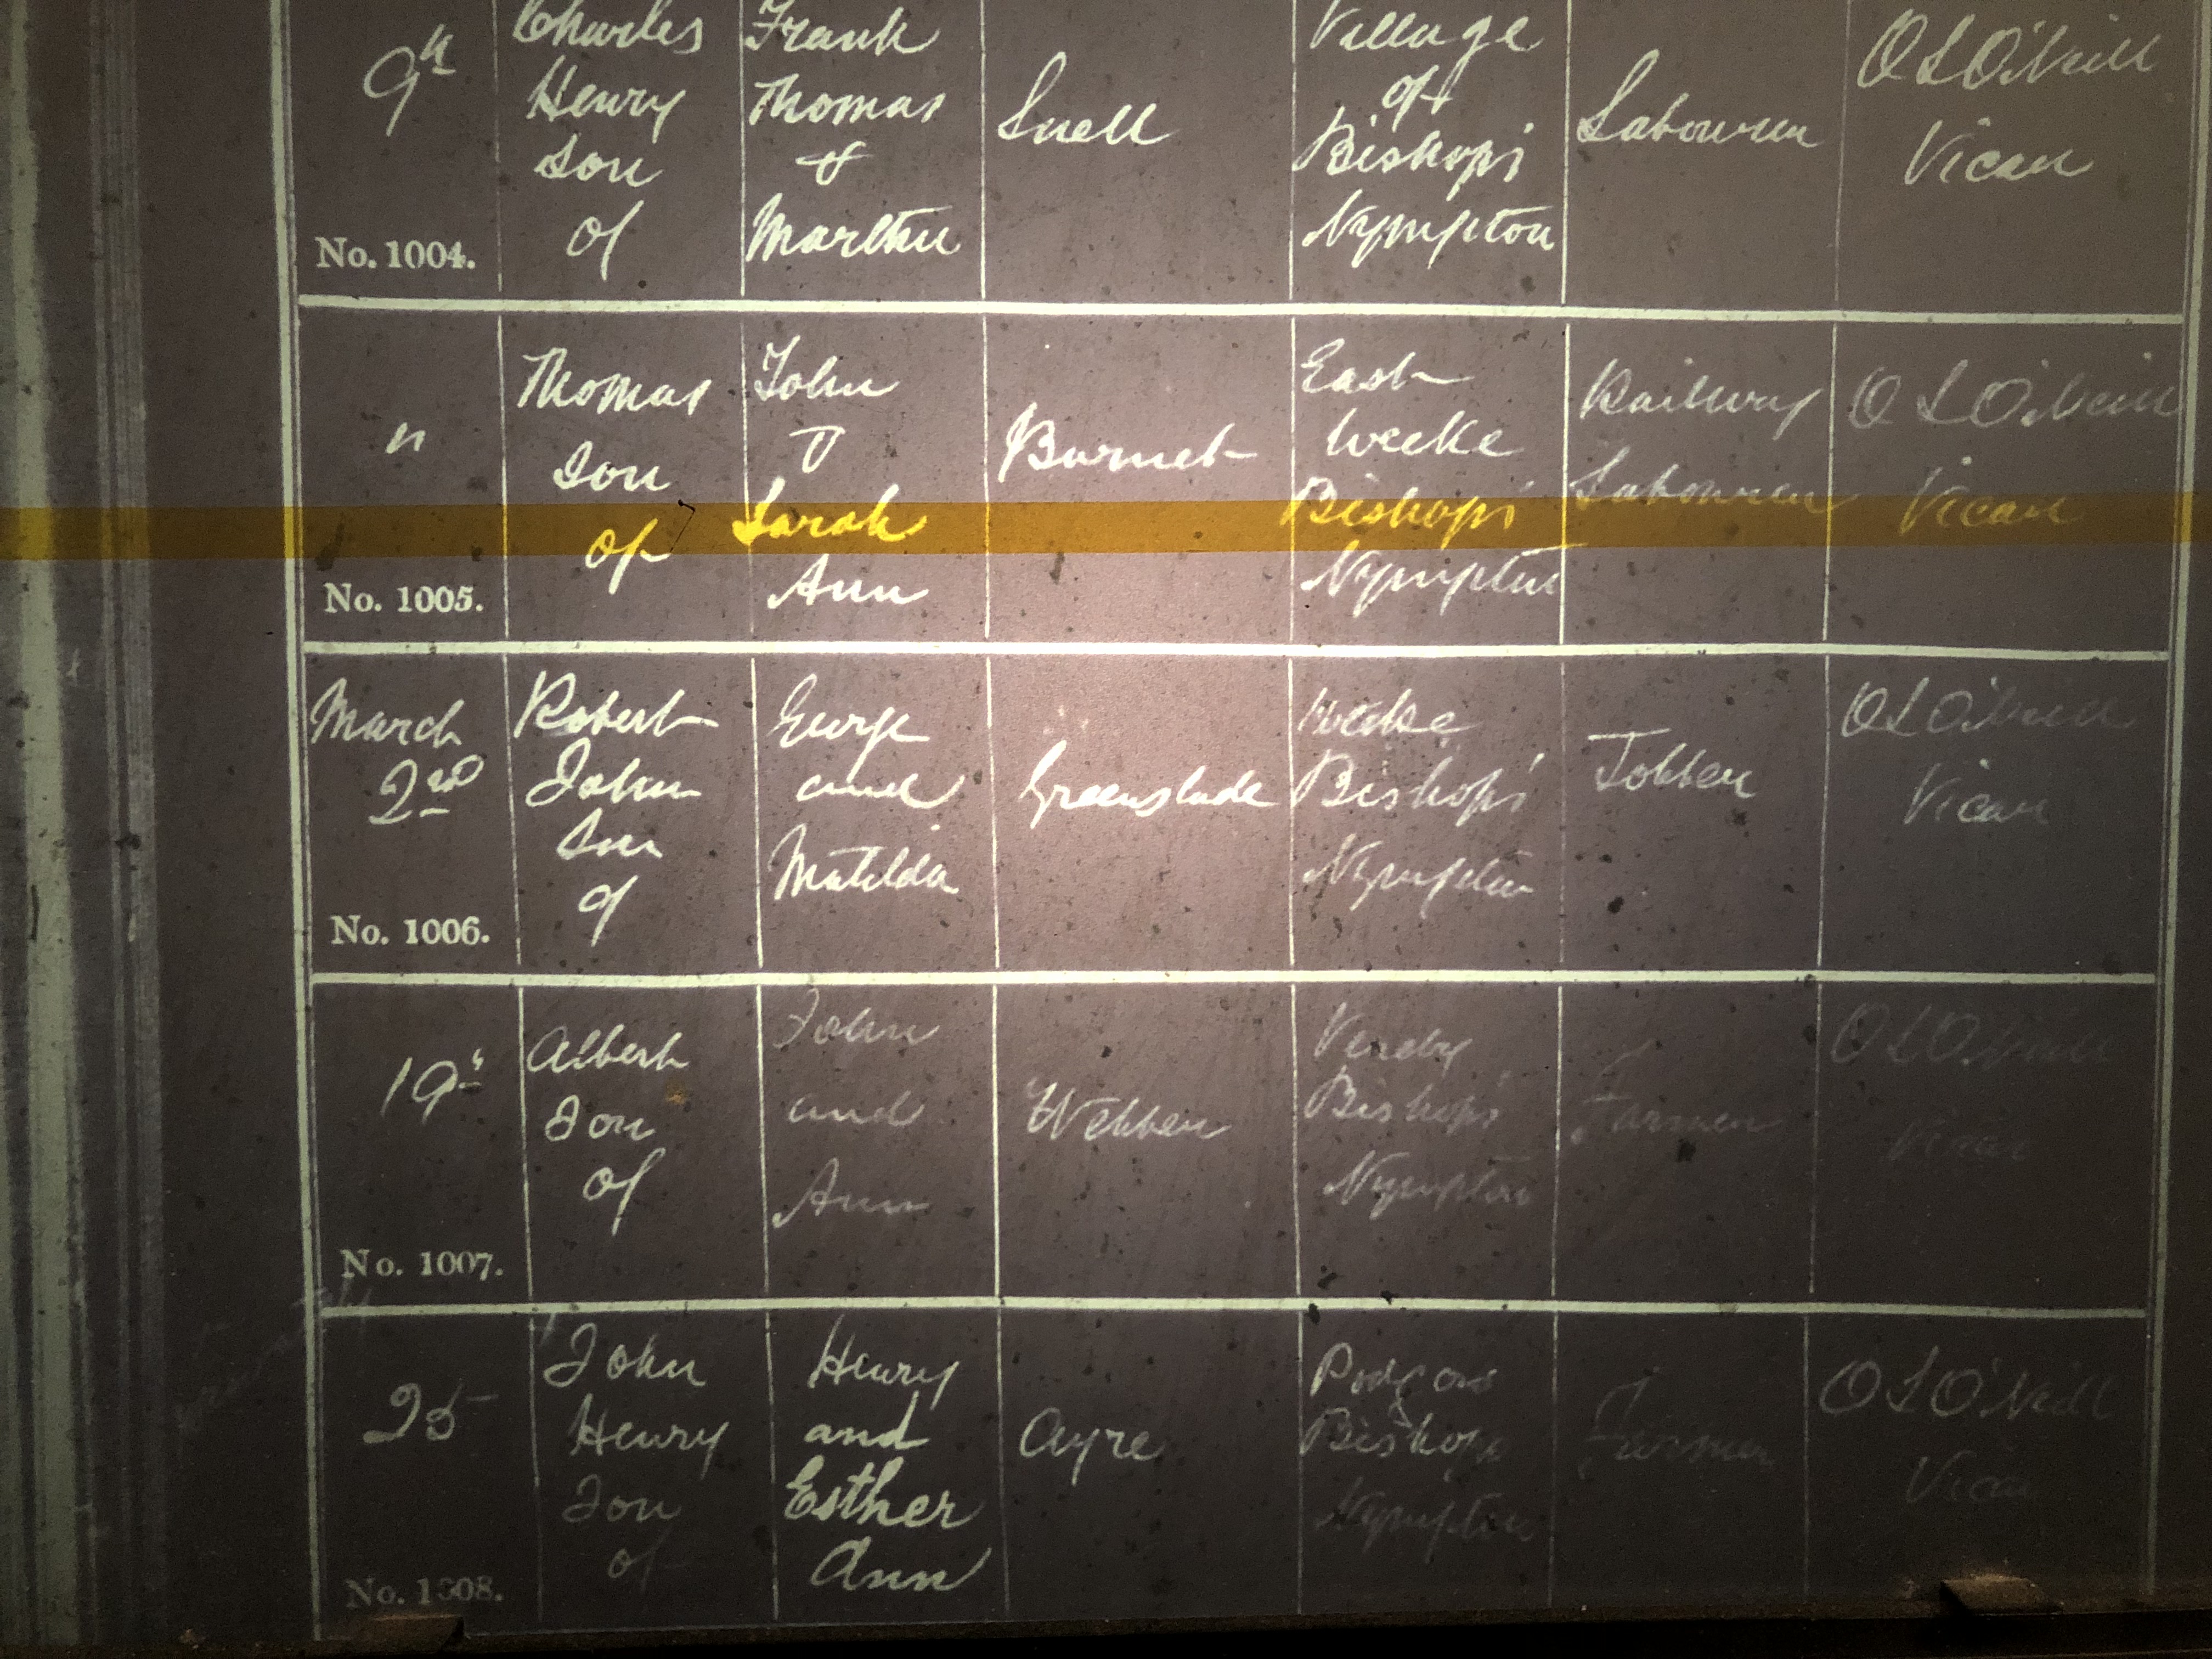 9th
Charles
Henry
Son
of
Frank
Thomas
&
Martha
Snell
Village
of
Bishops
Nympton
Labourer
O L O'Neill
Vicar
No. 1004.
"
Thomas
Son
of
John
&
Sarah
Ann
Burnet
East
Weeke
Bishops'
Nympton
Railway
Labourer
O L O'Neill
Vicar
No. 1005.
March
2nd
Robert
John
Son
of
George
and
Matilda
Greenslade
Weeke
Bishops'
Nympton
Jobber
O L O'Neill
Vicar
No. 1006.
19th
Albert
Son
of
John
and
Ann
Webber
Bishops'
Nympton
Farmer
O L O'Neill
Vicar
No. 1007.
25
John
Henry
Son
of
Henry
and
Esther
Ann
Ayre
Bishops
Nympton
Farmer
O L O'Neill
Vicar
No. 1008.